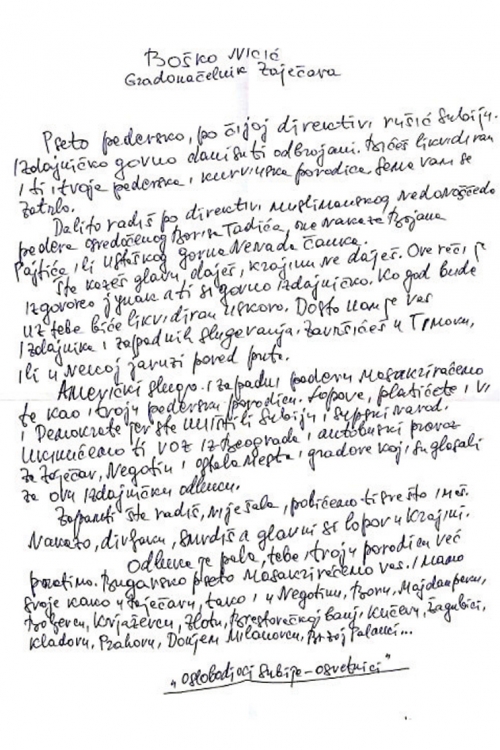 Boško Ničić
Gradonačelnik Zaječara
Pseto pedersko, po čijoj direktivi rušiš Srbiju.
Izdajničko govno dani su ti odbrojani. Bićeš likvidiran
i ti i tvoja pederska i kurvinska porodica. Seme vam se
zatrlo.
Da li to radiš po direktivi muslimanskog nedonoščeta
pedera osvedočenog Borisa Tadića, one nakaze Bojana
Pajtića, ili ustaškog govna Nenada Čanka.
Šta kažeš glavu daješ, krajinu ne daješ. Ove reči je
izgovoreo junak a ti si govno izdajničko. Ko god bude
uz tebe biće likvidiran uskoro. Dosta nam je vas
izdajnika i zapadnih slugeranja. Završićeš u Timoku,
ili u nekoj jaruzi pored puta.
Američki slugo i zapadni pederu masakriraćemo
te kao i tvoju pedersku porodicu. Lopove, platićete i vi
i Demokrate jer ste uništili Srbiju i srpski narod.
Ukinućemo ti voz iz Beograda i autobuski prevoz
za Zaječar, Negotin i ostala mesta i gradove koji su glasali
za ovu izdajničku odluku.
Zapamti šta radiš, nije šala, pobićemo ti sve što imaš.
Nakazo, divljaku, smrdiš a glavni si lopov u Krajini.
Odluka je pala, tebe i tvoju porodicu već
pratimo. Bugarsko pseto masakriraćemo vas. Imamo
svoje kako u Zaječaru, tako i u Negotinu, Boru, Majdanpeku,
Boljevcu, Knjaževcu, Zlotu, Brestovačkoj banji, Kučevu, Žagubici,
Kladovu, Prahovu, Donjem Milanovcu, Brzoj Palanci...
„Oslobodioci Srbije - osvetnici"